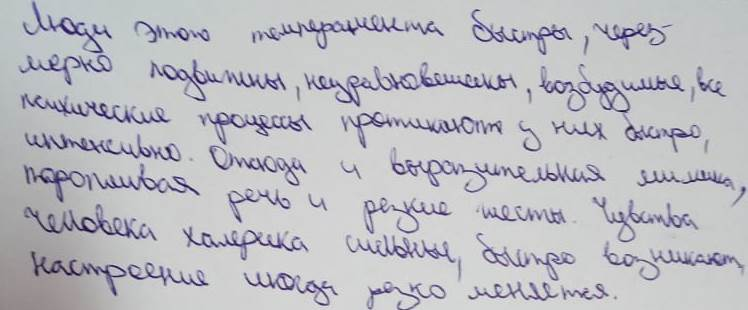 Люди этого темперамента быстры, чрез-
мерно подвижны, неуравновешены, возбудимые, все
психические процессы протикают у них быстро,
интенсивно. Отсюда и выразительная мимика,
торопливая речь и резкие жесты. Чувства
человека холерика сильные, быстро возникают,
настроение иногда резко меняется.